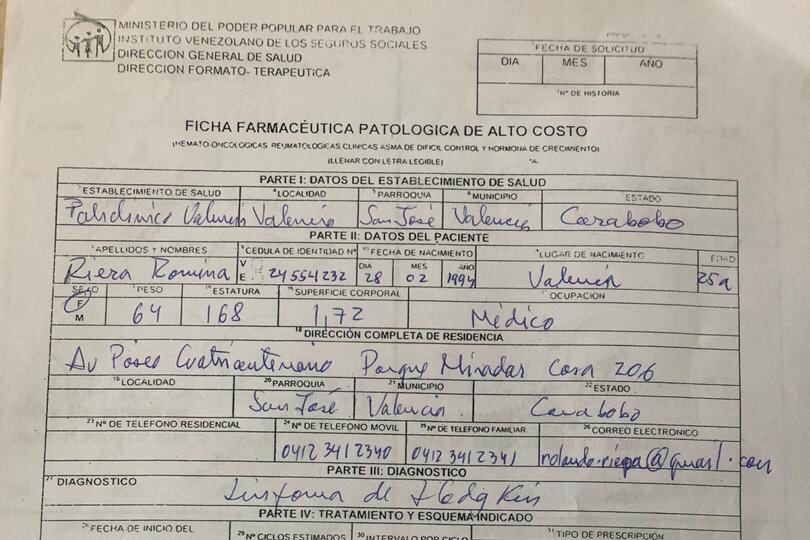 MINISTERIO DEL PODER POPULAR PARA EL TRABAJO
INSTITUTO VENEZOLANO DE LOS SEGUROS SOCIALES
DIRECCION GENERAL DE SALUD
DIRECCION FORMATO- TERAPEUTICA
FECHA DE SOLICITUD
DIA MES AÑO
N° DE HISTORIA
FICHA FARMACÉUTICA PATOLOGICA DE ALTO COSTO
(HEMATO-ONCOLOGICAS REUMATOLOGICAS CLINICAS ASMA DE DIFICIL CONTROL Y HORMONA DE CRECIMIENTO)
(LLENAR CON LETRA LEGIBLE)
PARTE I: DATOS DEL ESTABLECIMIENTO DE SALUD
ESTABLECIMIENTO DE SALUD LOCALIDAD PARROQUIA MUNICIPIO ESTADO
Policlinico Valencia Valencia San José Valencia Carabobo
PARTE II: DATOS DEL PACIENTE
APELLIDOS Y NOMBRES CEDULA DE IDENTIDAD N° FECHA DE NACIMIENTO LUGAR DE NACIMIENTO EDAD
Riera Romina V E 24554232 DIA 28 MES 02 AÑO 1994 Valencia 25a
SEXO PESO ESTATURA SUPERFICIE CORPORAL OCUPACION
F M 64 168 1,72 Médico
18 DIRECCIÓN COMPLETA DE RESIDENCIA
Av Paseo Cuatricentenario Parque Mirador Casa 206
19 LOCALIDAD 20 PARROQUIA 21 MUNICIPIO 22 ESTADO
San José Valencia Carabobo
23 N° DE TELEFONO RESIDENCIAL 24 N° DE TELEFONO MOVIL 25 N° DE TELEFONO FAMILIAR 26 CORREO ELECTRONICO
0412 341 2340 0412 341 2341 @gmail.com
PARTE III: DIAGNOSTICO
27 DIAGNOSTICO
Linfoma de Hodgkin
PARTE IV: TRATAMIENTO Y ESQUEMA INDICADO
28 FECHA DE INICIO DEL 29 N° CICLOS ESTIMADOS 30 INTERVALO POR CICLO 31 TIPO DE PRESCRIPCIÓN